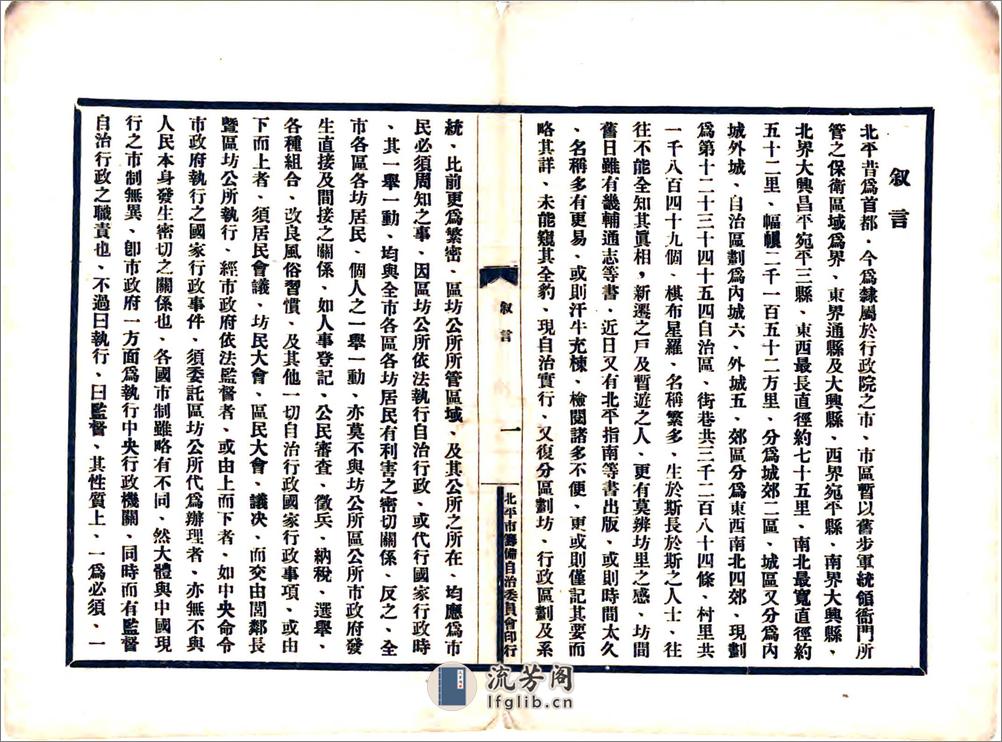 叙言
北平昔爲首都、今爲隸屬於行政院之市、市區暫以舊步軍統領衙門所
管之保衛區域爲界、東界通縣及大興縣、西界宛平縣、南界大興縣、
北界大興昌平宛平三縣、東西最長直徑約七十五里、南北最寬直徑約
五十二里、幅幀二千一百五十二方里、分爲城郊二區、城區又分爲內
城外城、自治區劃爲內城六、外城五、郊區分爲東西南北四郊、現劃
爲第十二十三十四十五四自治區、街巷共三千二百八十四條、村里共
一千八百四十九個、棋布星羅、名稱繁多、生於斯長於斯之人士、往
往不能全知其眞相、新遷之戶及暫遊之人、更有莫辨坊里之感、坊間
舊日雖有畿輔通志等書、近日又有北平指南等書出版、或則時間太久
、名稱多有更易、或則汗牛充棟、檢閱諸多不便、更或則僅記其要而
略其詳、未能窺其全豹、現自治實行、又復分區劃坊、行政區劃及系
叙言
一
北平市籌備自治委員會印行
統、比前更爲繁密、區坊公所所管區域、及其公所之所在、均應爲市
民必須周知之事、因區坊公所依法執行自治行政、或代行國家行政時
、其一舉一動、均與全市各區各坊居民有利害之密切關係、反之、全
市各區各坊居民、個人之一舉一動、亦莫不與坊公所區公所市政府發
生直接及間接之關係、如人事登記、公民審查、徵兵、納稅、選舉、
各種組合、改良風俗習慣、及其他一切自治行政國家行政事項、或由
下而上者、須居民會議、坊民大會、區民大會、議决、而交由閭鄰長
暨區坊公所執行、經市政府依法監督者、或由上而下者、如中央命令
市政府執行之國家行政事件、須委託區坊公所代爲辦理者、亦無不與
人民本身發生密切之關係也、各國市制雖略有不同、然大體與中國現
行之市制無異、卽市政府一方面爲執行中央行政機關、同時而有監督
自治行政之職責也、不過曰執行、曰監督、其性質上、一爲必須、一
流芳阁
lfglib.cn